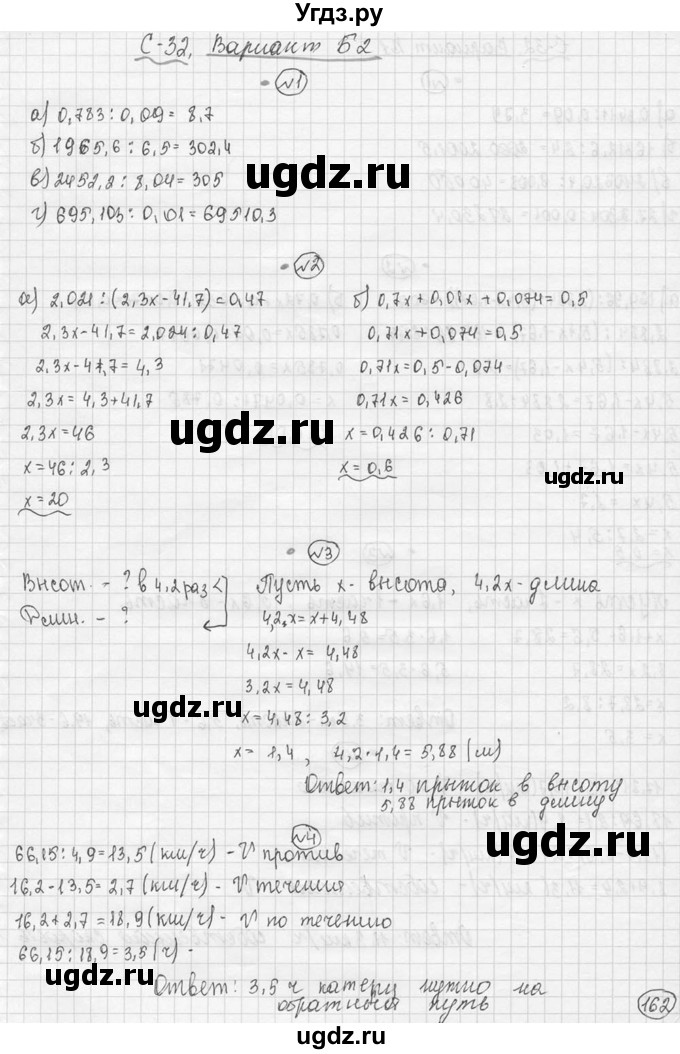 Угдз.ру
С-32, Вариант Б2
№1
а) 0,783 : 0,09 = 8,7
б) 1965,6 : 6,5 = 302,4
в) 2452,2 : 8,04 = 305
г) 695,103 : 0,01 = 69510,3
ugdz.ru
ugdz.ru
№2
а) 2,021 : (2,3x - 41,7) = 0,47
2,3x - 41,7 = 2,021 : 0,47
2,3x - 41,7 = 4,3
2,3x = 4,3 + 41,7
2,3x = 46
x = 46 : 2,3
x = 20
б) 0,7x + 0,01x + 0,074 = 0,5
0,71x + 0,074 = 0,5
0,71x = 0,5 - 0,074
0,71x = 0,426
x = 0,426 : 0,71
x = 0,6
ugdz.ru
ugdz.ru
№3
Высот. - ? в 4,2 раз <
Длин. - ?
Пусть x - высота, 4,2x - длина
4,2x = x + 4,48
4,2x - x = 4,48
3,2x = 4,48
x = 4,48 : 3,2
x = 1,4, 4,2 · 1,4 = 5,88 (м)
Ответ: 1,4 прыжок в высоту
5,88 прыжок в длину
ugdz.ru
ugdz.ru
ugdz.ru
№4
66,15 : 4,9 = 13,5 (км/ч) - V против
16,2 - 13,5 = 2,7 (км/ч) - V течения
16,2 + 2,7 = 18,9 (км/ч) - V по течению
66,15 : 18,9 = 3,5 (ч) -
Ответ: 3,5 ч катеру нужно на
обратный путь
ugdz.ru
ugdz.ru
162
ugdz.ru